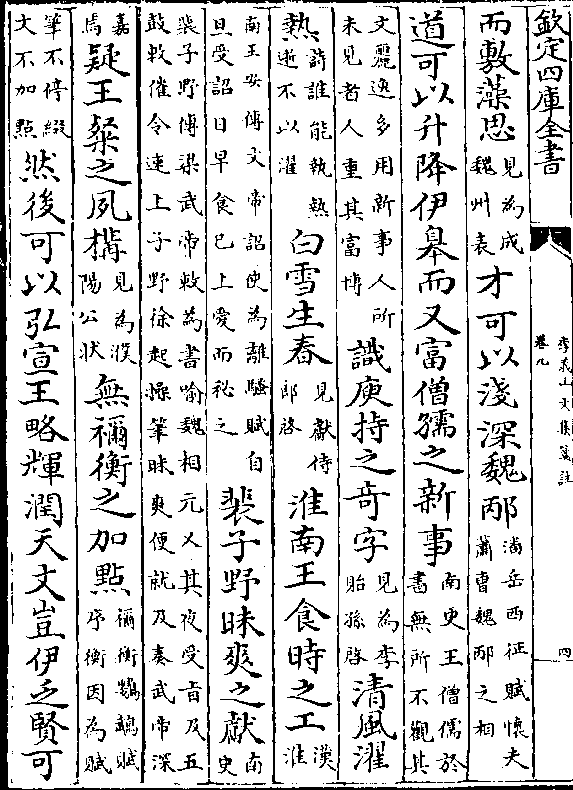 欽定四庫全書
李義山文集箋註
卷九
四
而敷藻思見為成魏州表才可以淺深魏邴潘岳西征賦懷夫蕭曹魏邴之相
道可以升降伊皋而又富僧孺之新事南史王僧儒於書無所不觀其
文麗逸多用新事人所未見者人重其富博識庾持之奇字見為李貽孫啓清風濯
熱詩誰能執熱逝不以濯白雪生春見獻侍郎啓淮南王食時之工漢淮
南王安傳文帝詔使為離騷賦自旦受詔日早食巳上愛而秘之裴子野昧爽之獻南史
裴子野傳梁武帝敕為書喻魏相元乂其夜受旨及五鼓敕催令速上子野徐起操筆昧爽便就及奏武帝深
嘉焉疑王粲之夙構見為濮陽公狀無禰衡之加點禰衡鸚鵡賦序衡因為賦
筆不停綴文不加點然後可以弘宣王略輝潤天文豈伊乏賢可